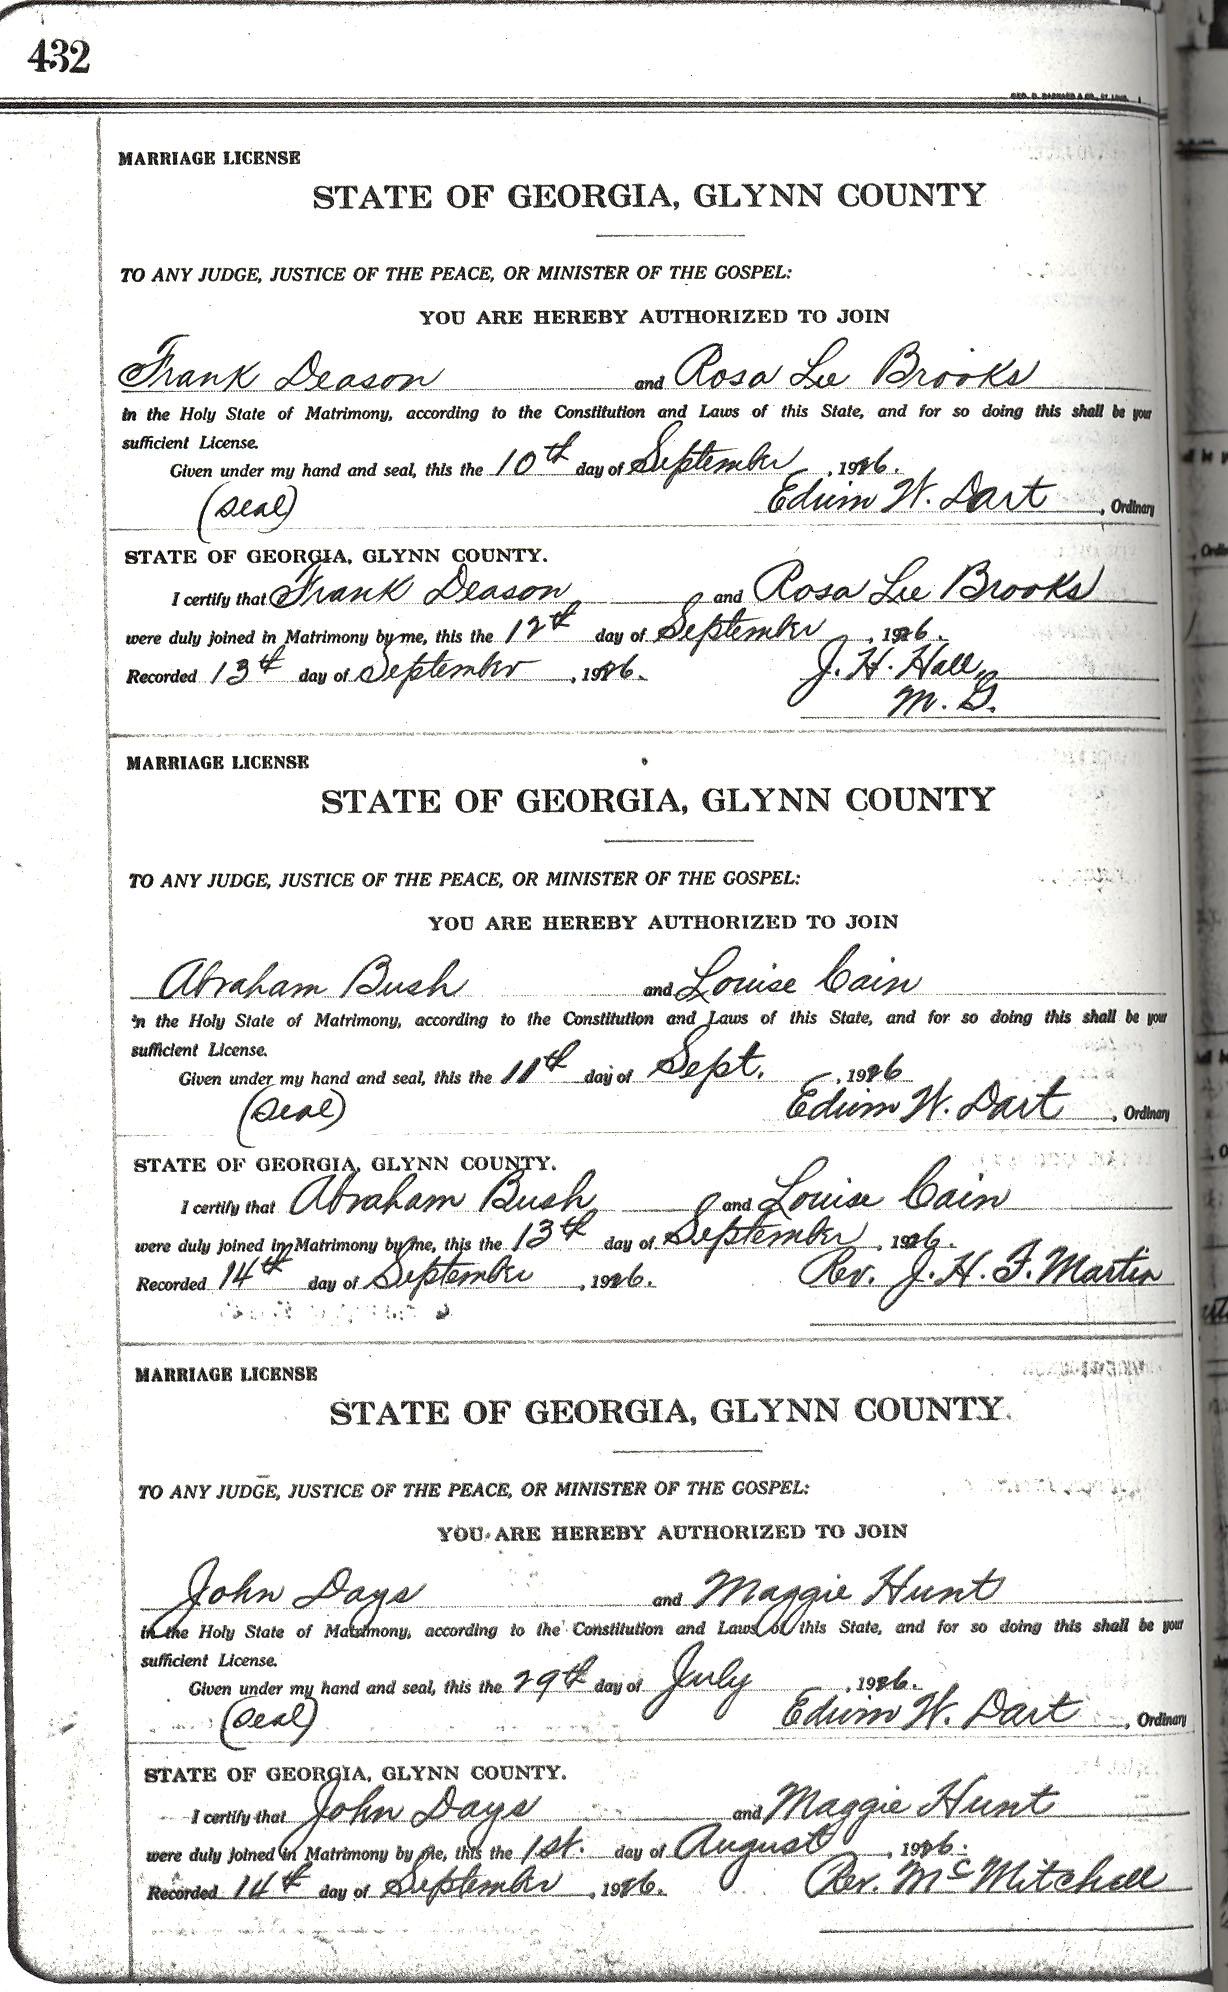 432
GEO. D. BARNARD & CO., ST. LOUIS
MARRIAGE LICENSE
STATE OF GEORGIA, GLYNN COUNTY
TO ANY JUDGE, JUSTICE OF THE PEACE, OR MINISTER OF THE GOSPEL:
YOU ARE HEREBY AUTHORIZED TO JOIN
Frank Deason and Rosa Lee Brooks
in the Holy State of Matrimony, according to the Constitution and Laws of this State, and for so doing this shall be your
sufficient License.
Given under my hand and seal, this the 10th day of September, 1926.
(Seal) Edwin W. Dart, Ordinary
STATE OF GEORGIA, GLYNN COUNTY.
I certify that Frank Deason and Rosa Lee Brooks
were duly joined in Matrimony by me, this the 12th day of September, 1926.
Recorded 13th day of September, 1926. J. H. Hall,
M. G.
MARRIAGE LICENSE
STATE OF GEORGIA, GLYNN COUNTY
TO ANY JUDGE, JUSTICE OF THE PEACE, OR MINISTER OF THE GOSPEL:
YOU ARE HEREBY AUTHORIZED TO JOIN
Abraham Bush and Louise Cain
in the Holy State of Matrimony, according to the Constitution and Laws of this State, and for so doing this shall be your
sufficient License.
Given under my hand and seal, this the 11th day of Sept., 1926
(Seal) Edwin W. Dart, Ordinary
STATE OF GEORGIA, GLYNN COUNTY.
I certify that Abraham Bush and Louise Cain
were duly joined in Matrimony by me, this the 13th day of September, 1926.
Recorded 14th day of September, 1926. Rev. J. H. F. Martin
MARRIAGE LICENSE
STATE OF GEORGIA, GLYNN COUNTY.
TO ANY JUDGE, JUSTICE OF THE PEACE, OR MINISTER OF THE GOSPEL:
YOU ARE HEREBY AUTHORIZED TO JOIN
John Days and Maggie Hunt
in the Holy State of Matrimony, according to the Constitution and Laws of this State, and for so doing this shall be your
sufficient License.
Given under my hand and seal, this the 29th day of July, 1926.
(Seal) Edwin W. Dart, Ordinary
STATE OF GEORGIA, GLYNN COUNTY.
I certify that John Days and Maggie Hunt
were duly joined in Matrimony by me, this the 1st. day of August, 1926.
Recorded 14th day of September, 1926. Rev. Mc Mitchell